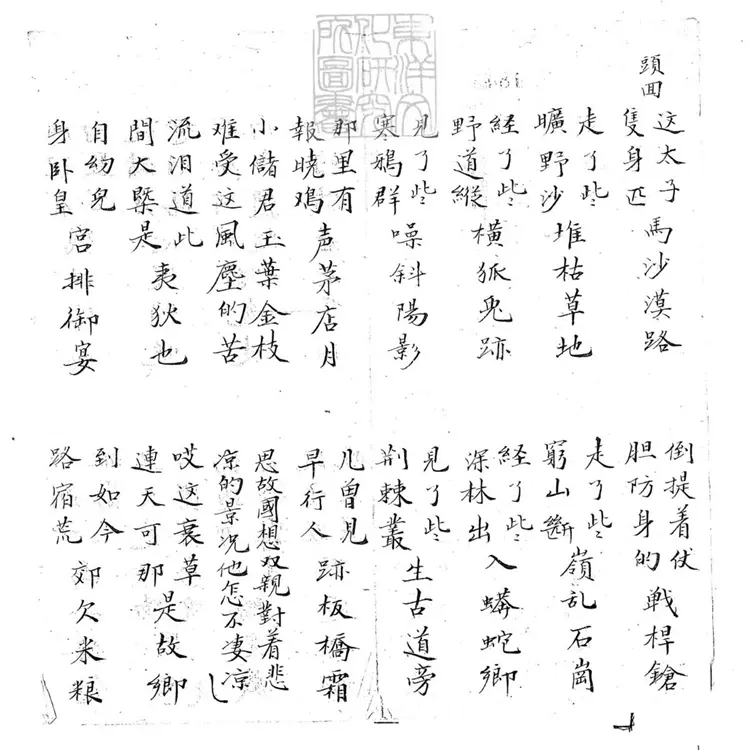 東洋文化研究所圖書
頭囬
这太子隻身匹馬沙漠路
倒提着伏胆防身的戰桿鎗
走了些曠野沙堆枯草地
走了些窮山斷嶺乱石崗
経了些野道縱橫狐兎跡
経了些深林出入蟒蛇鄉
見了些寒鴉群噪斜陽影
見了些荆棘叢生古道旁
那里有報曉鸡声茅店月
几曾見早行人跡板橋霜
小儲君玉葉金枝难受这風塵的苦
思故國想双親對着悲凉的景況他怎不凄凉
流泪道此間大槩是夷狄也
哎这衰草連天可那是故鄉
自幼兒身卧皇宮排御宴
到如今路宿荒郊欠米粮